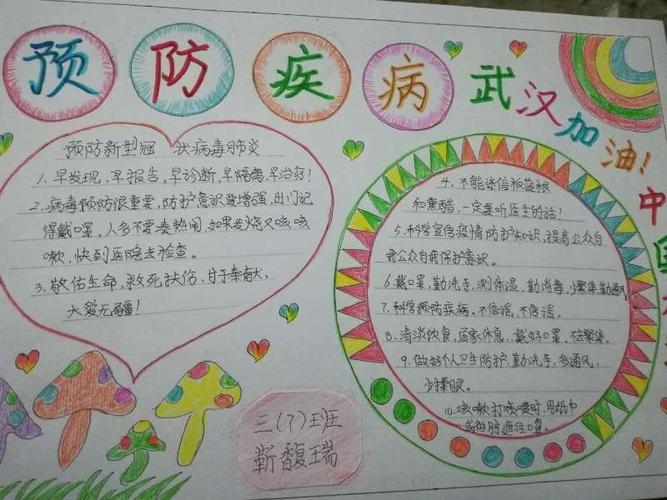 预防疾病
武汉加油!
中国
预防新型冠 状病毒肺炎
1、早发现,早报告,早诊断,早隔离,早治疗!
2、病毒预防很重要,防护意识要增强,出门记
得戴口罩,人多不要凑热闹,如果发烧又咳咳
嗽,快到医院去检查。
3、敬佑生命,救死扶伤,甘于奉献,
大爱无疆!
4、不能迷信板蓝根
和熏醋,一定要听医生的话!
5、科学宣传疫情防护知识,提高公众自
我公众自我保护意识。
6、戴口罩,勤洗手,测体温,勤消毒,少聚集,勤通风
7、科学预防疾病,不信谣,不传谣。
8、清淡饮食,居家休息,戴好口罩,不聚集。
9、做好个人卫生防护,勤洗手,多通风,
少揉眼。
10、咳嗽打喷嚏时,用纸巾
或 遮住口鼻。
三(7)班
靳馥瑞